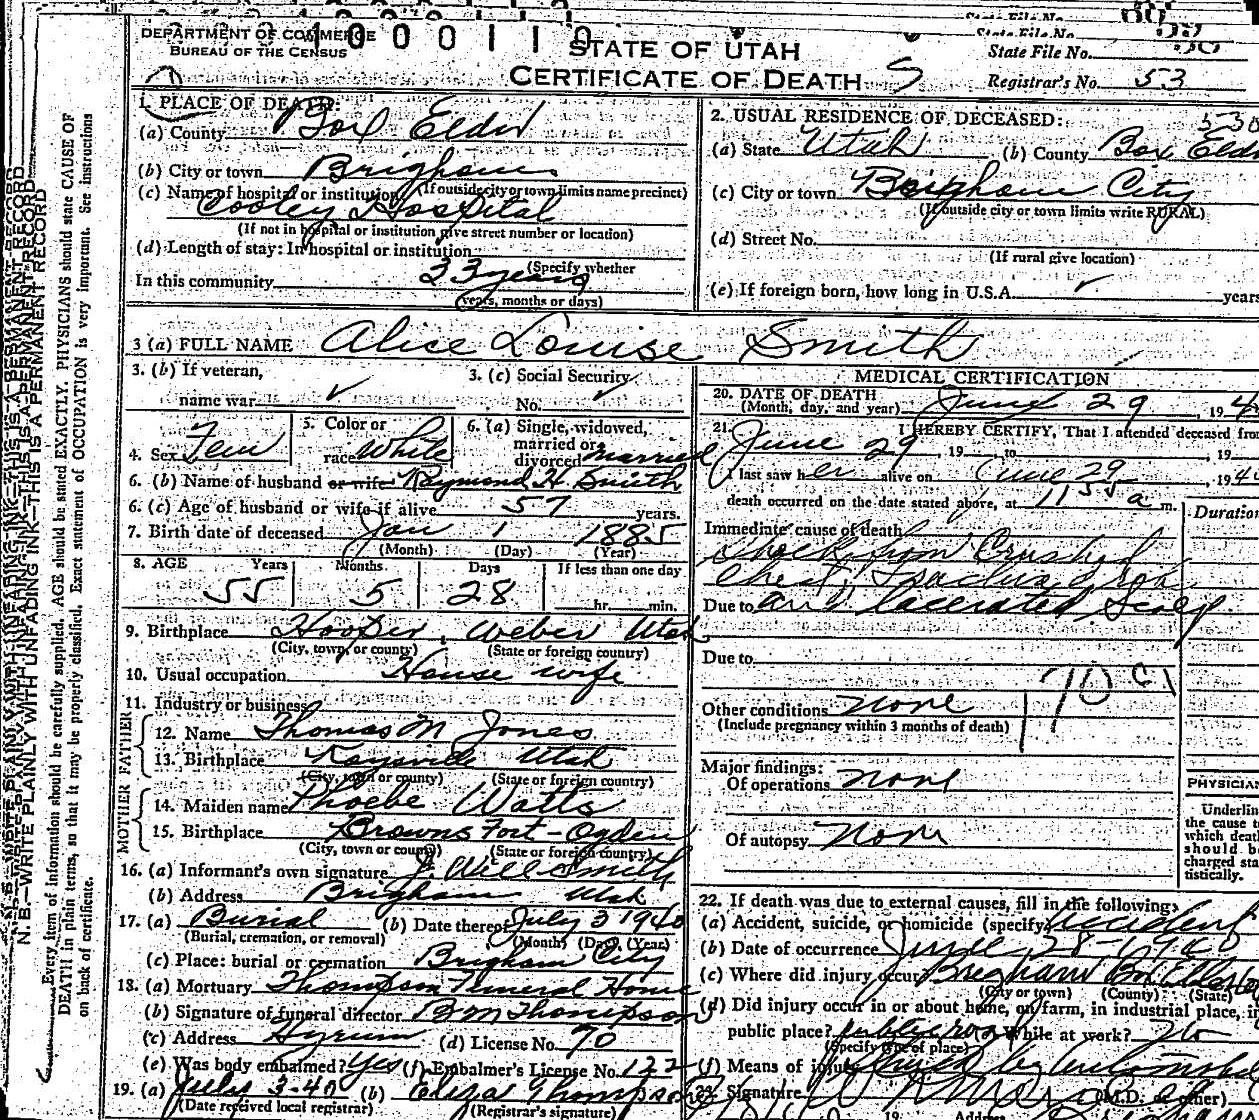 DEPARTMENT OF COMMERCE
BUREAU OF THE CENSUS
STATE OF UTAH
CERTIFICATE OF DEATH
State File No.
State File No.
State File No.
Registrar's No. 53
1. PLACE OF DEATH:
(a) County Box Elder
(b) City or town Brigham
(If outside city or town limits name precinct)
(c) Name of hospital or institution
Cooley Hospital
(If not in hospital or institution give street number or location)
(d) Length of stay: In hospital or institution
(Specify whether
In this community 33 years
(years, months or days)
2. USUAL RESIDENCE OF DECEASED:
(a) State Utah (b) County Box Elder
(c) City or town Brigham City
(If outside city or town limits write RURAL)
(d) Street No.
(If rural give location)
(e) If foreign born, how long in U.S.A. ✓ years
3 (a) FULL NAME Alice Louise Smith
3. (b) If veteran, name war ✓
3. (c) Social Security No. ✓
4. Sex Fem
5. Color or race White
6. (a) Single, widowed, married or divorced Married
6. (b) Name of husband or wife Raymond H. Smith
6. (c) Age of husband or wife if alive 57 years.
7. Birth date of deceased Jan 1 1885
(Month) (Day) (Year)
8. AGE Years Months Days If less than one day
55 5 28 hr. min.
9. Birthplace Hooper, Weber Utah
(City, town, or county) (State or foreign country)
10. Usual occupation House wife
11. Industry or business
FATHER
12. Name Thomas M Jones
13. Birthplace Kaysville Utah
(City, town or county) (State or foreign country)
MOTHER
14. Maiden name Phoebe Watts
15. Birthplace Browns Fort - Ogden
(City, town or county) (State or foreign country)
16. (a) Informant's own signature J. Will Smith
(b) Address Brigham Utah
17. (a) Burial (b) Date thereof July 3 1940
(Burial, cremation, or removal) (Month) (Day) (Year)
(c) Place: burial or cremation Brigham City
18. (a) Mortuary Thompson Funeral Home
(b) Signature of funeral director B M Thompson
(c) Address Hyrum (d) License No. 70
(e) Was body embalmed? Yes (f) Embalmer's License No. 122
19. (a) July 3-40 (b) Eliza Thompson
(Date received local registrar) (Registrar's signature)
MEDICAL CERTIFICATION
20. DATE OF DEATH
(Month, day, and year) June 29, 194
21. I HEREBY CERTIFY, That I attended deceased from
June 29, 19 , to , 19
I last saw her alive on June 29, 194
death occurred on the date stated above, at 11 55 a m.
Duration
Immediate cause of death
Shock from Crushed
Chest,
Due to and lacerated Scalp
Due to
Other conditions None
(Include pregnancy within 3 months of death)
Major findings:
Of operations None
Of autopsy None
PHYSICIAN
Underline
the cause to
which death
should be
charged sta
tistically.
22. If death was due to external causes, fill in the following:
(a) Accident, suicide, or homicide (specify) Accident
(b) Date of occurrence June 28-1940
(c) Where did injury occur Brigham Box Elder
(City or town) (County) (State)
(d) Did injury occur in or about home, on farm, in industrial place, in
public place? public road While at work? No
(Specify type of place)
(f) Means of injury Struck by automobile
Signature (M.D. or other)
Address
N. B.—WRITE PLAINLY WITH UNFADING INK—THIS IS A PERMANENT RECORD
Every item of information should be carefully supplied. AGE should be stated EXACTLY. PHYSICIANS should state CAUSE OF
DEATH in plain terms, so that it may be properly classified. Exact statement of OCCUPATION is very important. See instructions
on back of certificate.